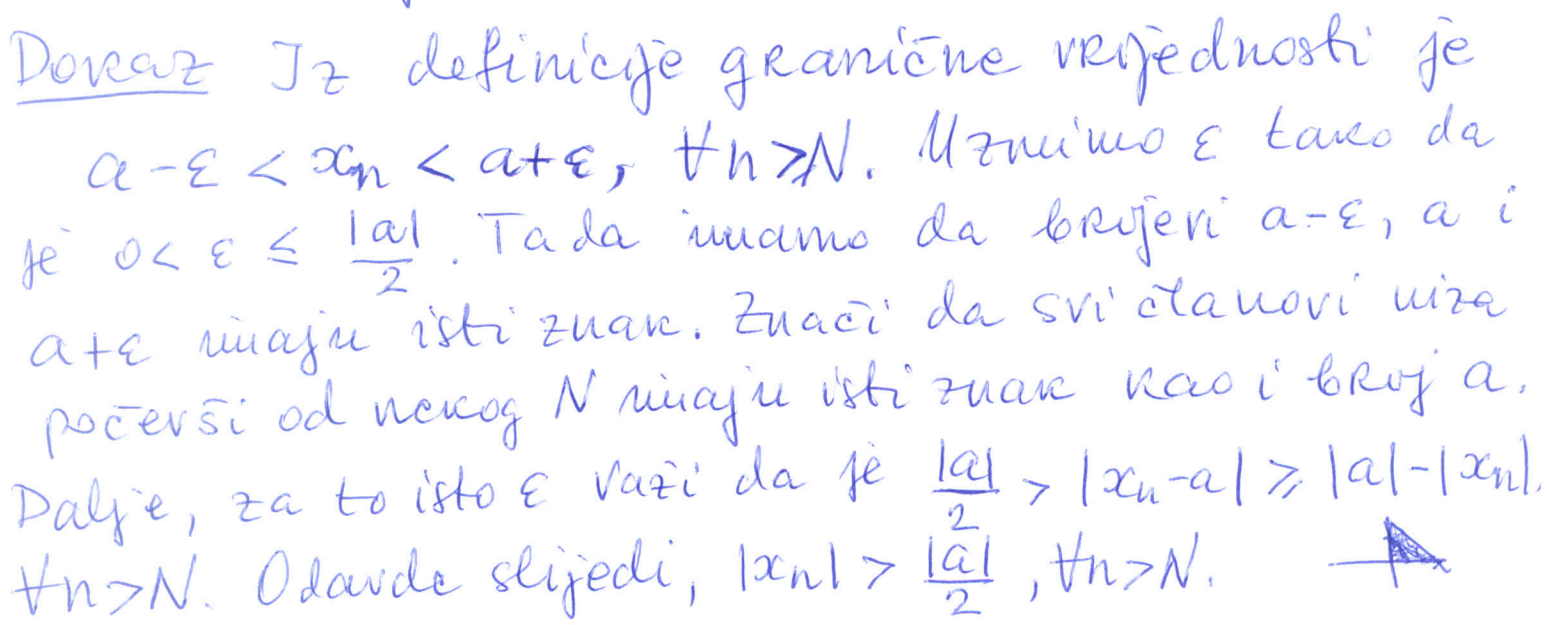 Dokaz Iz definicije granične vrijednosti je
a-ε < xₙ < a+ε, ∀n≥N. Uzmimo ε tako da
je 0< ε ≤ |a|/2. Tada imamo da brojevi a-ε, a i
a+ε imaju isti znak. Znači da svi članovi niza
počevši od nekog N imaju isti znak kao i broj a.
Dalje, za to isto ε važi da je |a|/2 > |xₙ-a| ≥ |a|-|xₙ|,
∀n>N. Odavde slijedi, |xₙ| > |a|/2, ∀n>N.